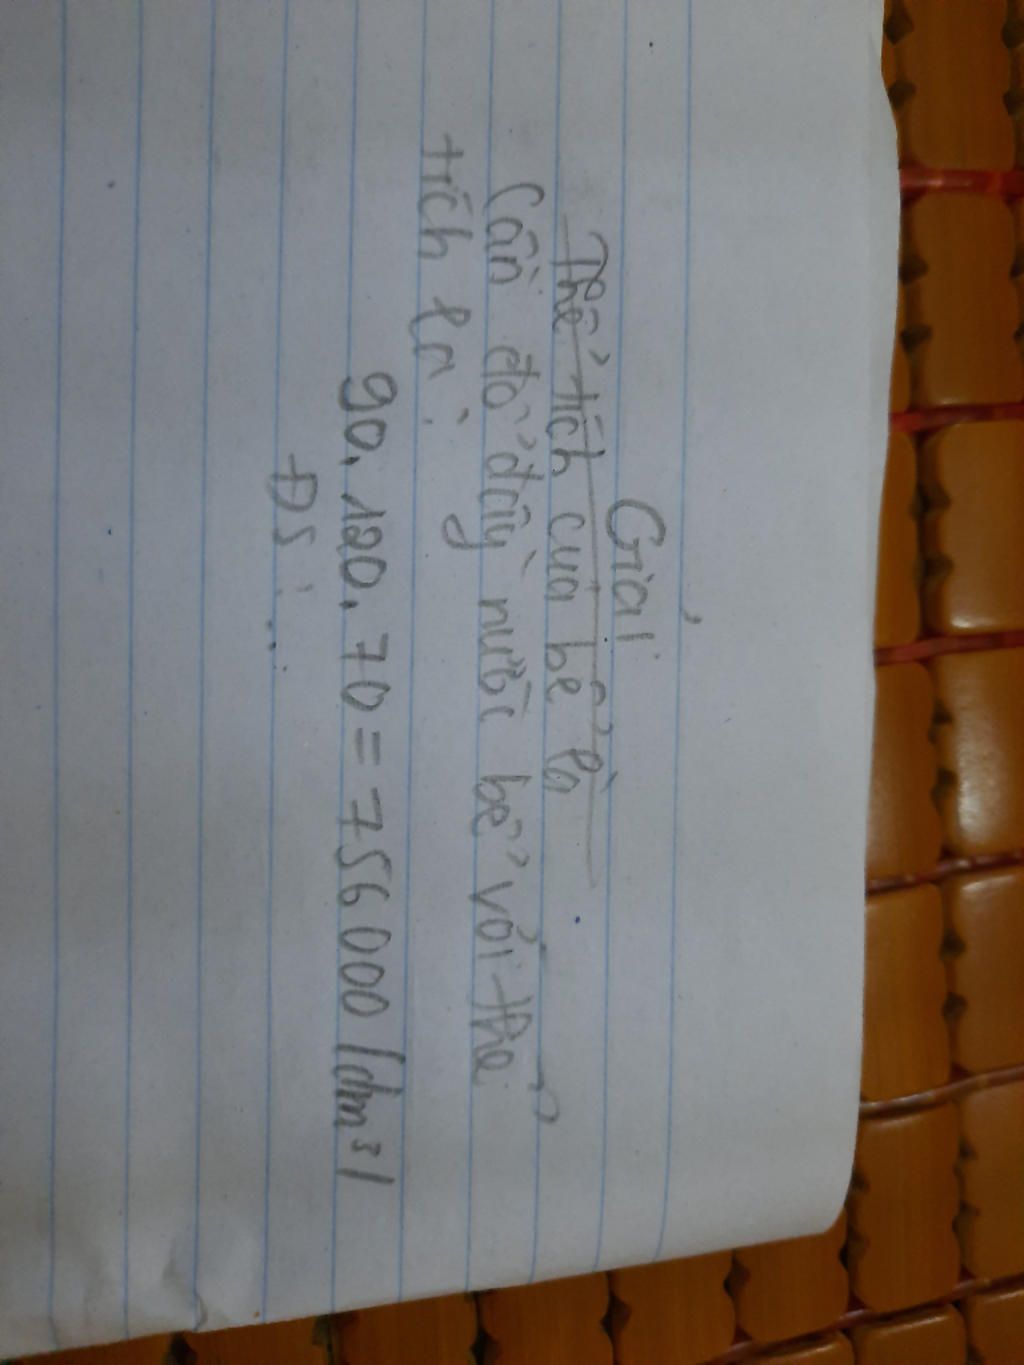 Giải
Thể tích của bể là
Cần đổ đầy nước bể với thể
tích là:
90.120.70=756000 (dm³)
ĐS:..